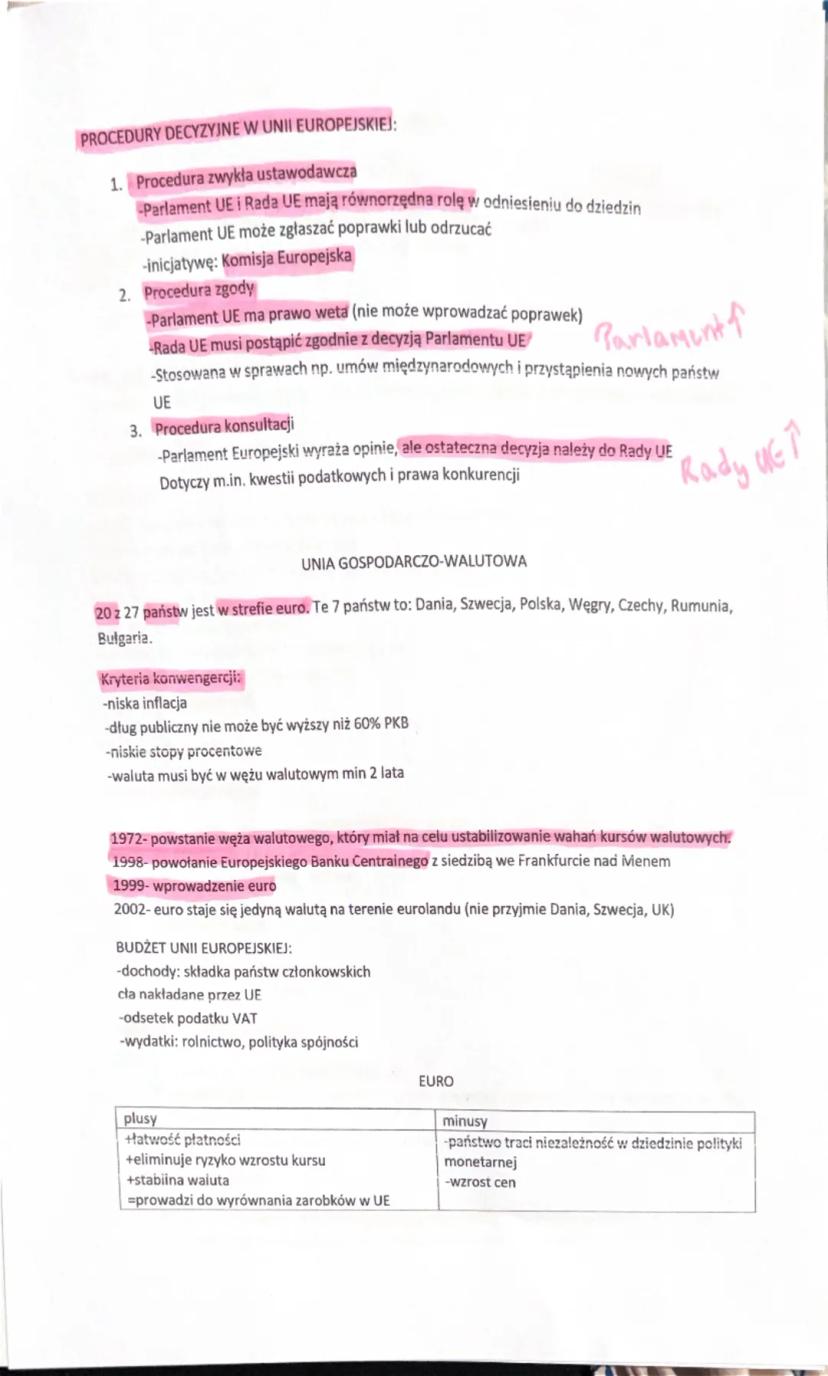 PROCEDURY DECYZYJNE W UNII EUROPEJSKIEJ:
1. Procedura zwykła ustawodawcza
-Parlament UE i Rada UE mają równorzędną rolę w odniesieniu do dziedzin
-Parlament UE może zgłaszać poprawki lub odrzucać
-inicjatywę: Komisja Europejska
2. Procedura zgody
-Parlament UE ma prawo weta (nie może wprowadzać poprawek)
-Rada UE musi postąpić zgodnie z decyzją Parlamentu UE
Parlament↑
-Stosowana w sprawach np. umów międzynarodowych i przystąpienia nowych państw
UE
3. Procedura konsultacji
-Parlament Europejski wyraża opinie, ale ostateczna decyzja należy do Rady UE
Rady UE↑
Dotyczy m.in. kwestii podatkowych i prawa konkurencji
UNIA GOSPODARCZO-WALUTOWA
20 z 27 państw jest w strefie euro. Te 7 państw to: Dania, Szwecja, Polska, Węgry, Czechy, Rumunia,
Bułgaria.
Kryteria konwengercji:
-niska inflacja
-dług publiczny nie może być wyższy niż 60% PKB
-niskie stopy procentowe
-waluta musi być w wężu walutowym min 2 lata
1972- powstanie węża walutowego, który miał na celu ustabilizowanie wahań kursów walutowych.
1998- powołanie Europejskiego Banku Centralnego z siedzibą we Frankfurcie nad Menem
1999- wprowadzenie euro
2002- euro staje się jedyną walutą na terenie eurolandu (nie przyjmie Dania, Szwecja, UK)
BUDŻET UNII EUROPEJSKIEJ:
-dochody: składka państw członkowskich
cła nakładane przez UE
-odsetek podatku VAT
-wydatki: rolnictwo, polityka spójności
EURO
plusy
+łatwość płatności
+eliminuje ryzyko wzrostu kursu
+stabilna waluta
=prowadzi do wyrównania zarobków w UE
minusy
-państwo traci niezależność w dziedzinie polityki
monetarnej
-wzrost cen